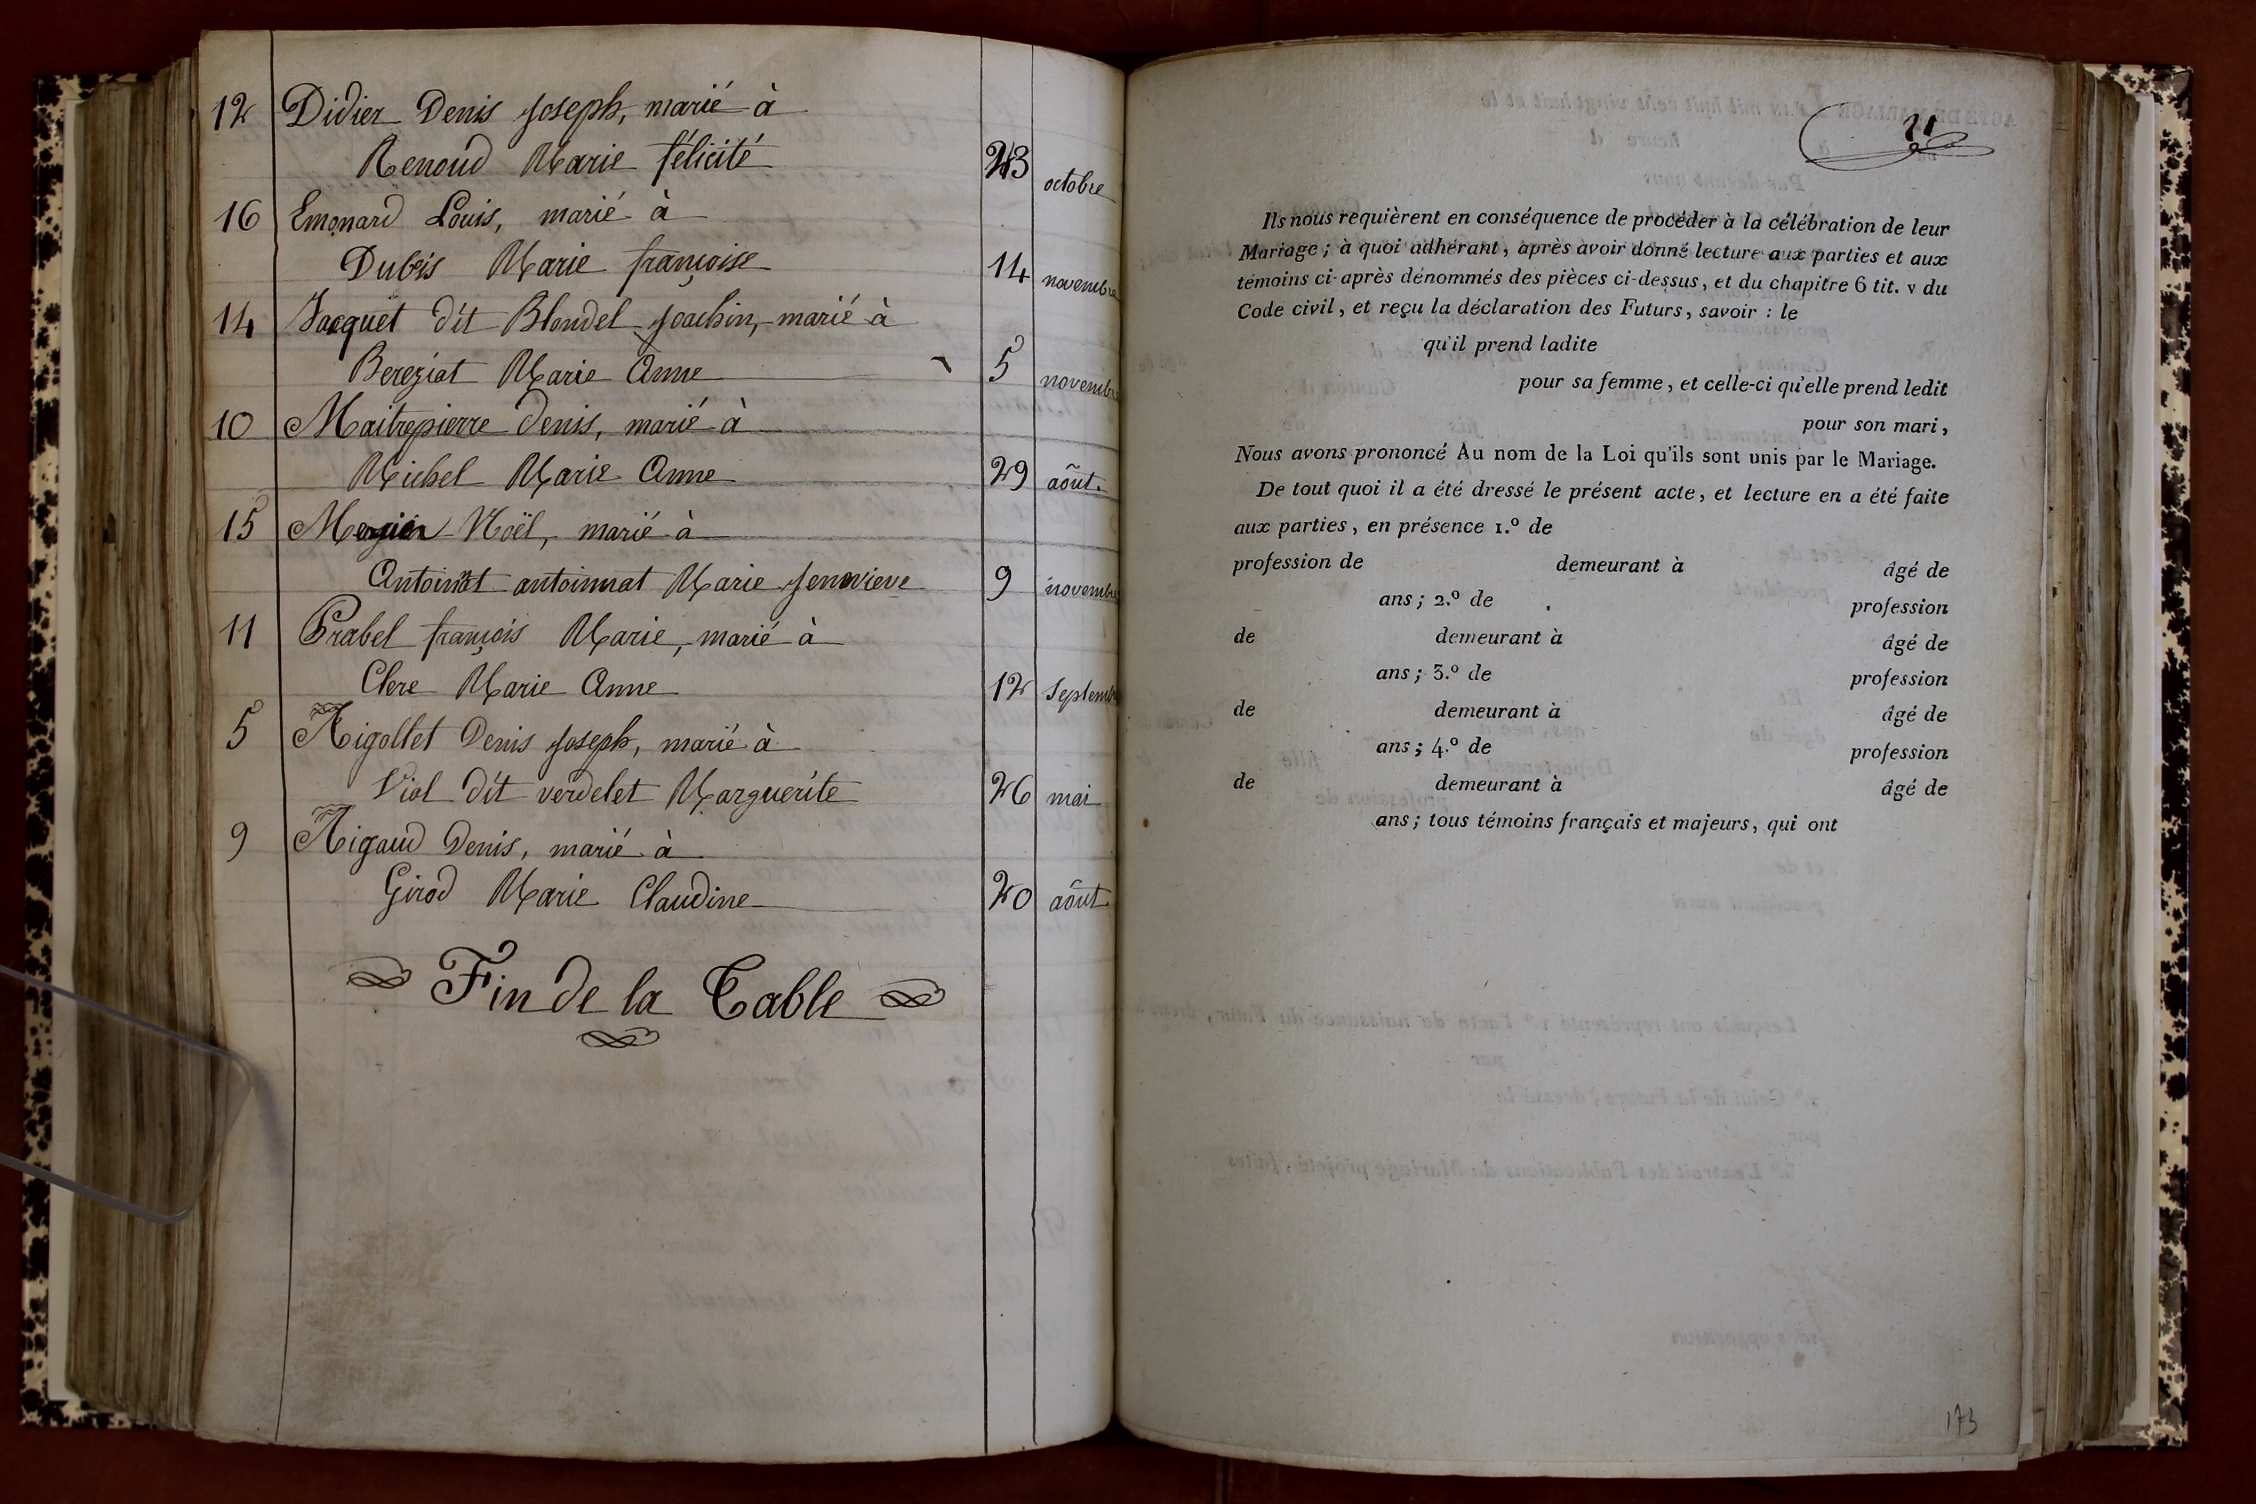 12 Didier Denis Joseph, marié à
Renoud Marie félicité 23 octobre
16 Emonard Louis, marié à
Dubois Marie françoise 14 novembre
14 Jacquet dit Blondel Joachin, marié à
Bereziat Marie Anne 5 novembre
10 Maitrepierre Denis, marié à
Michel Marie Anne 29 août.
15 Noël, marié à
Antoinat antoinnat Marie Jenevieve 9 novembre
11 Prabel françois Marie, marié à
Clere Marie Anne 12 Septembre
5 Rigollet Denis Joseph, marié à
Viol dit verdelet Marguerite 26 mai
9 Rigaud Denis, marié à
Girod Marie Claudine 20 août
Fin de la Table
21
Ils nous requièrent en conséquence de procéder à la célébration de leur
Mariage ; à quoi adhérant, après avoir donné lecture aux parties et aux
témoins ci-après dénommés des pièces ci-dessus, et du chapitre 6 tit. v du
Code civil, et reçu la déclaration des Futurs, savoir : le
qu'il prend ladite
pour sa femme, et celle-ci qu'elle prend ledit
pour son mari,
Nous avons prononcé Au nom de la Loi qu'ils sont unis par le Mariage.
De tout quoi il a été dressé le présent acte, et lecture en a été faite
aux parties, en présence 1.º de
profession de demeurant à âgé de
ans ; 2.º de profession
de demeurant à âgé de
ans ; 3.º de profession
de demeurant à âgé de
ans ; 4.º de profession
de demeurant à âgé de
ans ; tous témoins français et majeurs, qui ont
173